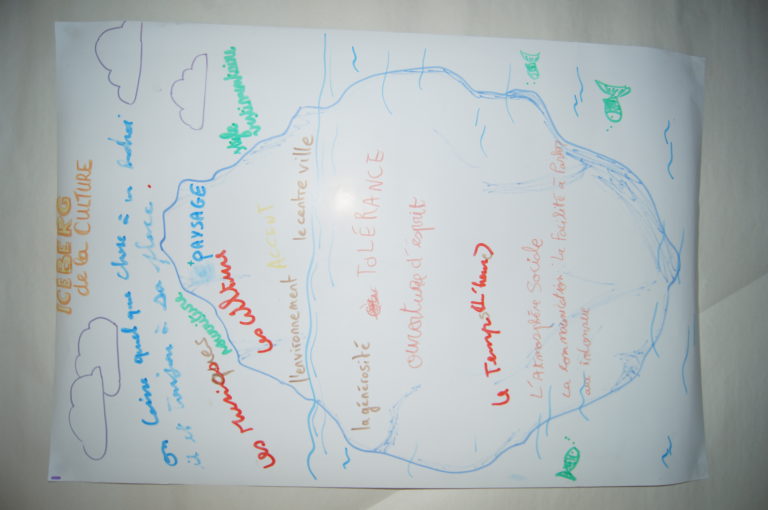 ICEBERG
de la CULTURE
on laisse quelque chose à un rocher
il et toujours à sa place.
style
vestimentaire
+ PAYSAGE
nourriture
Les musiques
Les cultures
ACCENT
l'environnement le centre ville
la générosité TOLÉRANCE
ouverture d'esprit
Le Temps (L'heure)
L'Atmosphère Sociale
La communication: La facilité à parler
aux inconnus